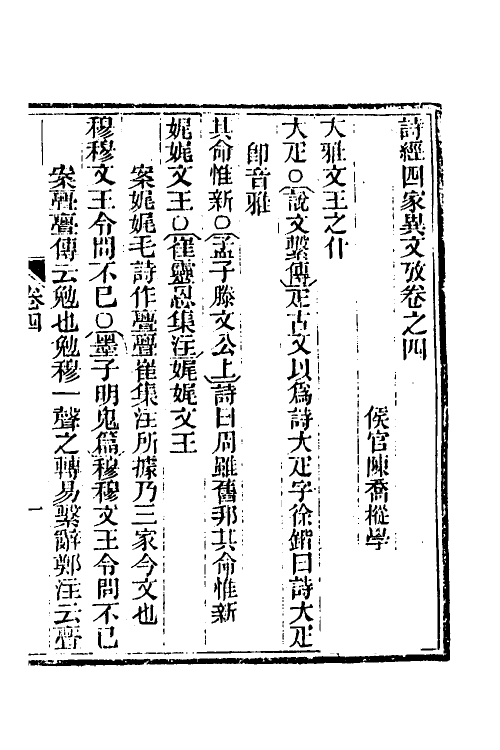 詩經四家異文攷卷之四
侯官陳喬樅學
大雅文王之什
大疋○說文繫傳疋古文以爲詩大疋字徐鍇曰詩大疋
卽音雅
其命惟新○孟子滕文公上詩曰周雖舊邦其命惟新
娓娓文王○崔靈恩集注娓娓文王
案娓娓毛詩作亹亹崔集注所據乃三家今文也
穆穆文王令問不已○墨子明鬼篇穆穆文王令問不已
案亹亹傳云勉也勉穆一聲之轉易繫辭鄭注云亹
卷四
一